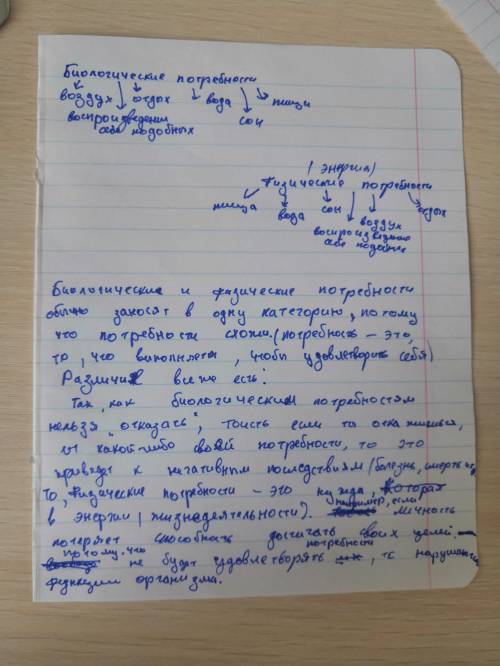 Биологические потребности
воздух отдых вода сон пищи
воспроизведении
себе подобных
(энергия)
Физические потребности
пища вода сон воздух отдых
воспроизведению
себе подобных
Биологические и физические потребности
обычно заносят в одну категорию, потому
что потребности схожи. (потребность – это,
то, что выполняется, чтобы удовлетворить себя)
Различия все же есть:
Так, как биологическим потребностям
нельзя "отказать", тоисть если ты откажешься,
от какой-либо своей потребности, то это
приведёт к негативным последствиям (болезнь, смерть
то, физические потребности – это нужда, которая
в энергии (жизнедеятельности). например, если личность
потеряет способность достигать своих целей.
потому, что не будет удовлетворять потребности, то нарушаются
функции организма.